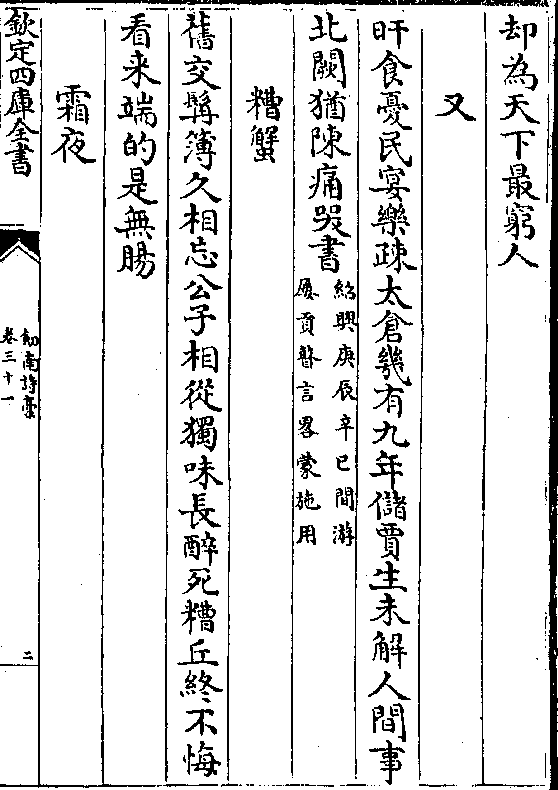 却為天下最窮人
又
旰食憂民宴樂疎太倉㡬有九年儲賈生未解人間事
北闕猶陳痛哭書紹興庚辰辛巳間游
屢貢瞽言畧蒙施用
糟蟹
舊交髯簿久相忘公子相從獨味長醉死糟丘終不悔
看来端的是無腸
霜夜
欽定四庫全書
劍南詩藁
卷三十一
二